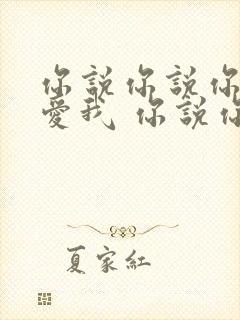 你說你說你
愛我 你說你
夏家紅